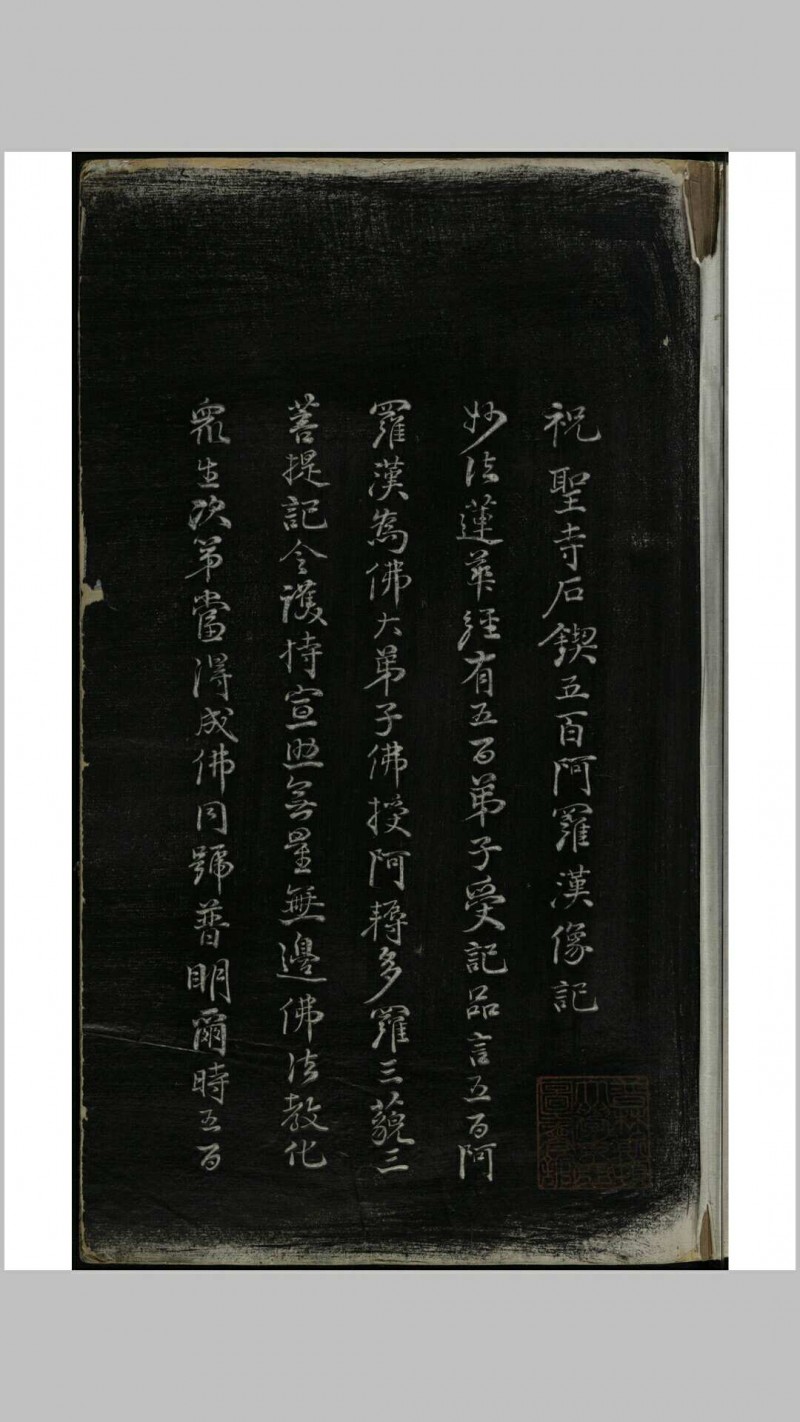 祝聖寺石鍥五百阿羅漢像記
妙法蓮華經有五百弟子受記品言五百阿
羅漢為佛大弟子佛授阿耨多羅三藐三
菩提記令護持宣助無量無邊佛法教化
眾生次第當得成佛同號普明爾時五百